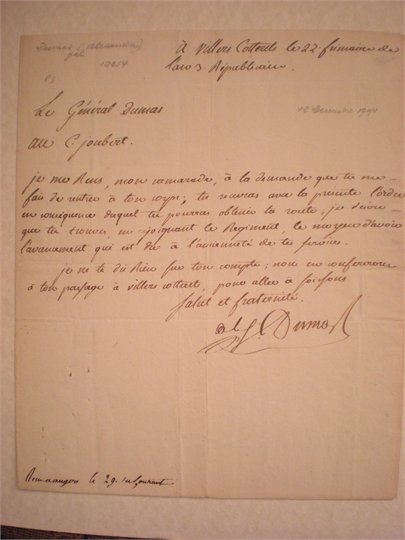 Dumas (Alexandre)
gal
à Villers Cotterets le 22 frimaire de
l'an 3 Républicain.
12 Décembre 1794
Le Général Dumas
au C. joubert.
je me Rens, mon camarade, à la demande que tu me
fais de rentrer à ton corps; tu recevras avec la présente l'ordre
en conséquence duquel tu pourras obtenir ta route. je désire
que tu trouves, en rejoignant le Régiment, le moyen d'avoir
l'avancement qui est dû à l'ancienneté de tes services.
je ne te dis Rien sur ton compte; nous en conférerons
à ton passage à villers cotterets, pour aller à Soissons
Salut et fraternité.
Dumas
le 29. du Courant